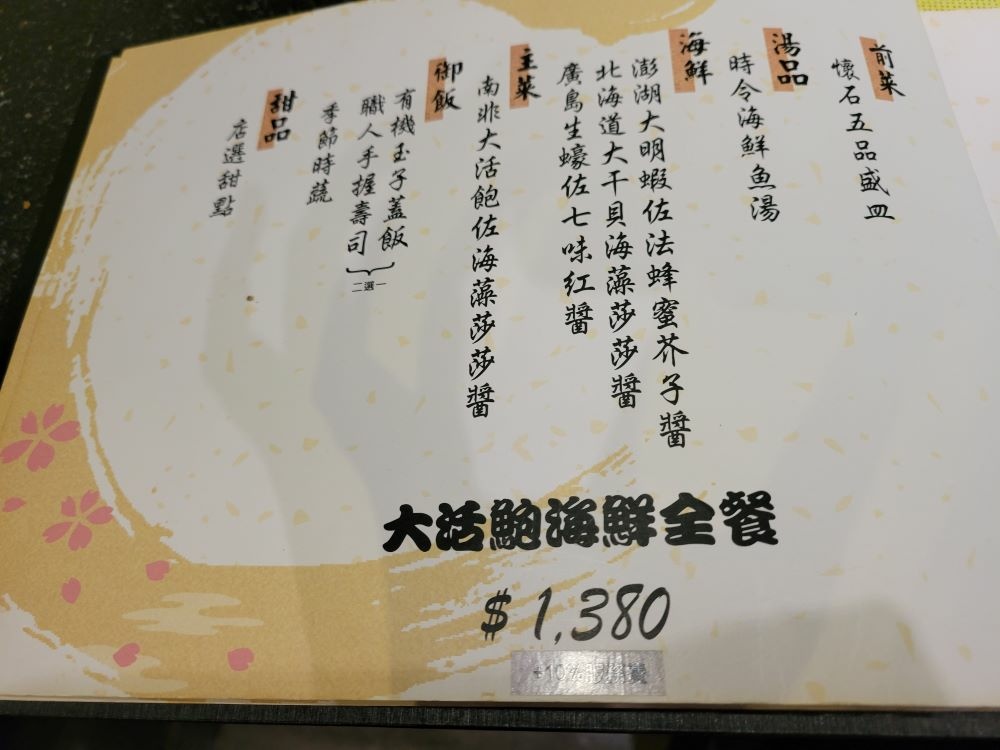 前菜
懷石五品盛皿
湯品
時令海鮮魚湯
海鮮
澎湖大明蝦佐法蜂蜜芥子醬
北海道大干貝海藻莎莎醬
廣島生蠔佐七味紅醬
主菜
南非大活鮑佐海藻莎莎醬
御飯
有機玉子蓋飯
職人手握壽司
二選一
季節時蔬
甜品
店選甜點
大活鮑海鮮全餐
$1,380
+10%服務費